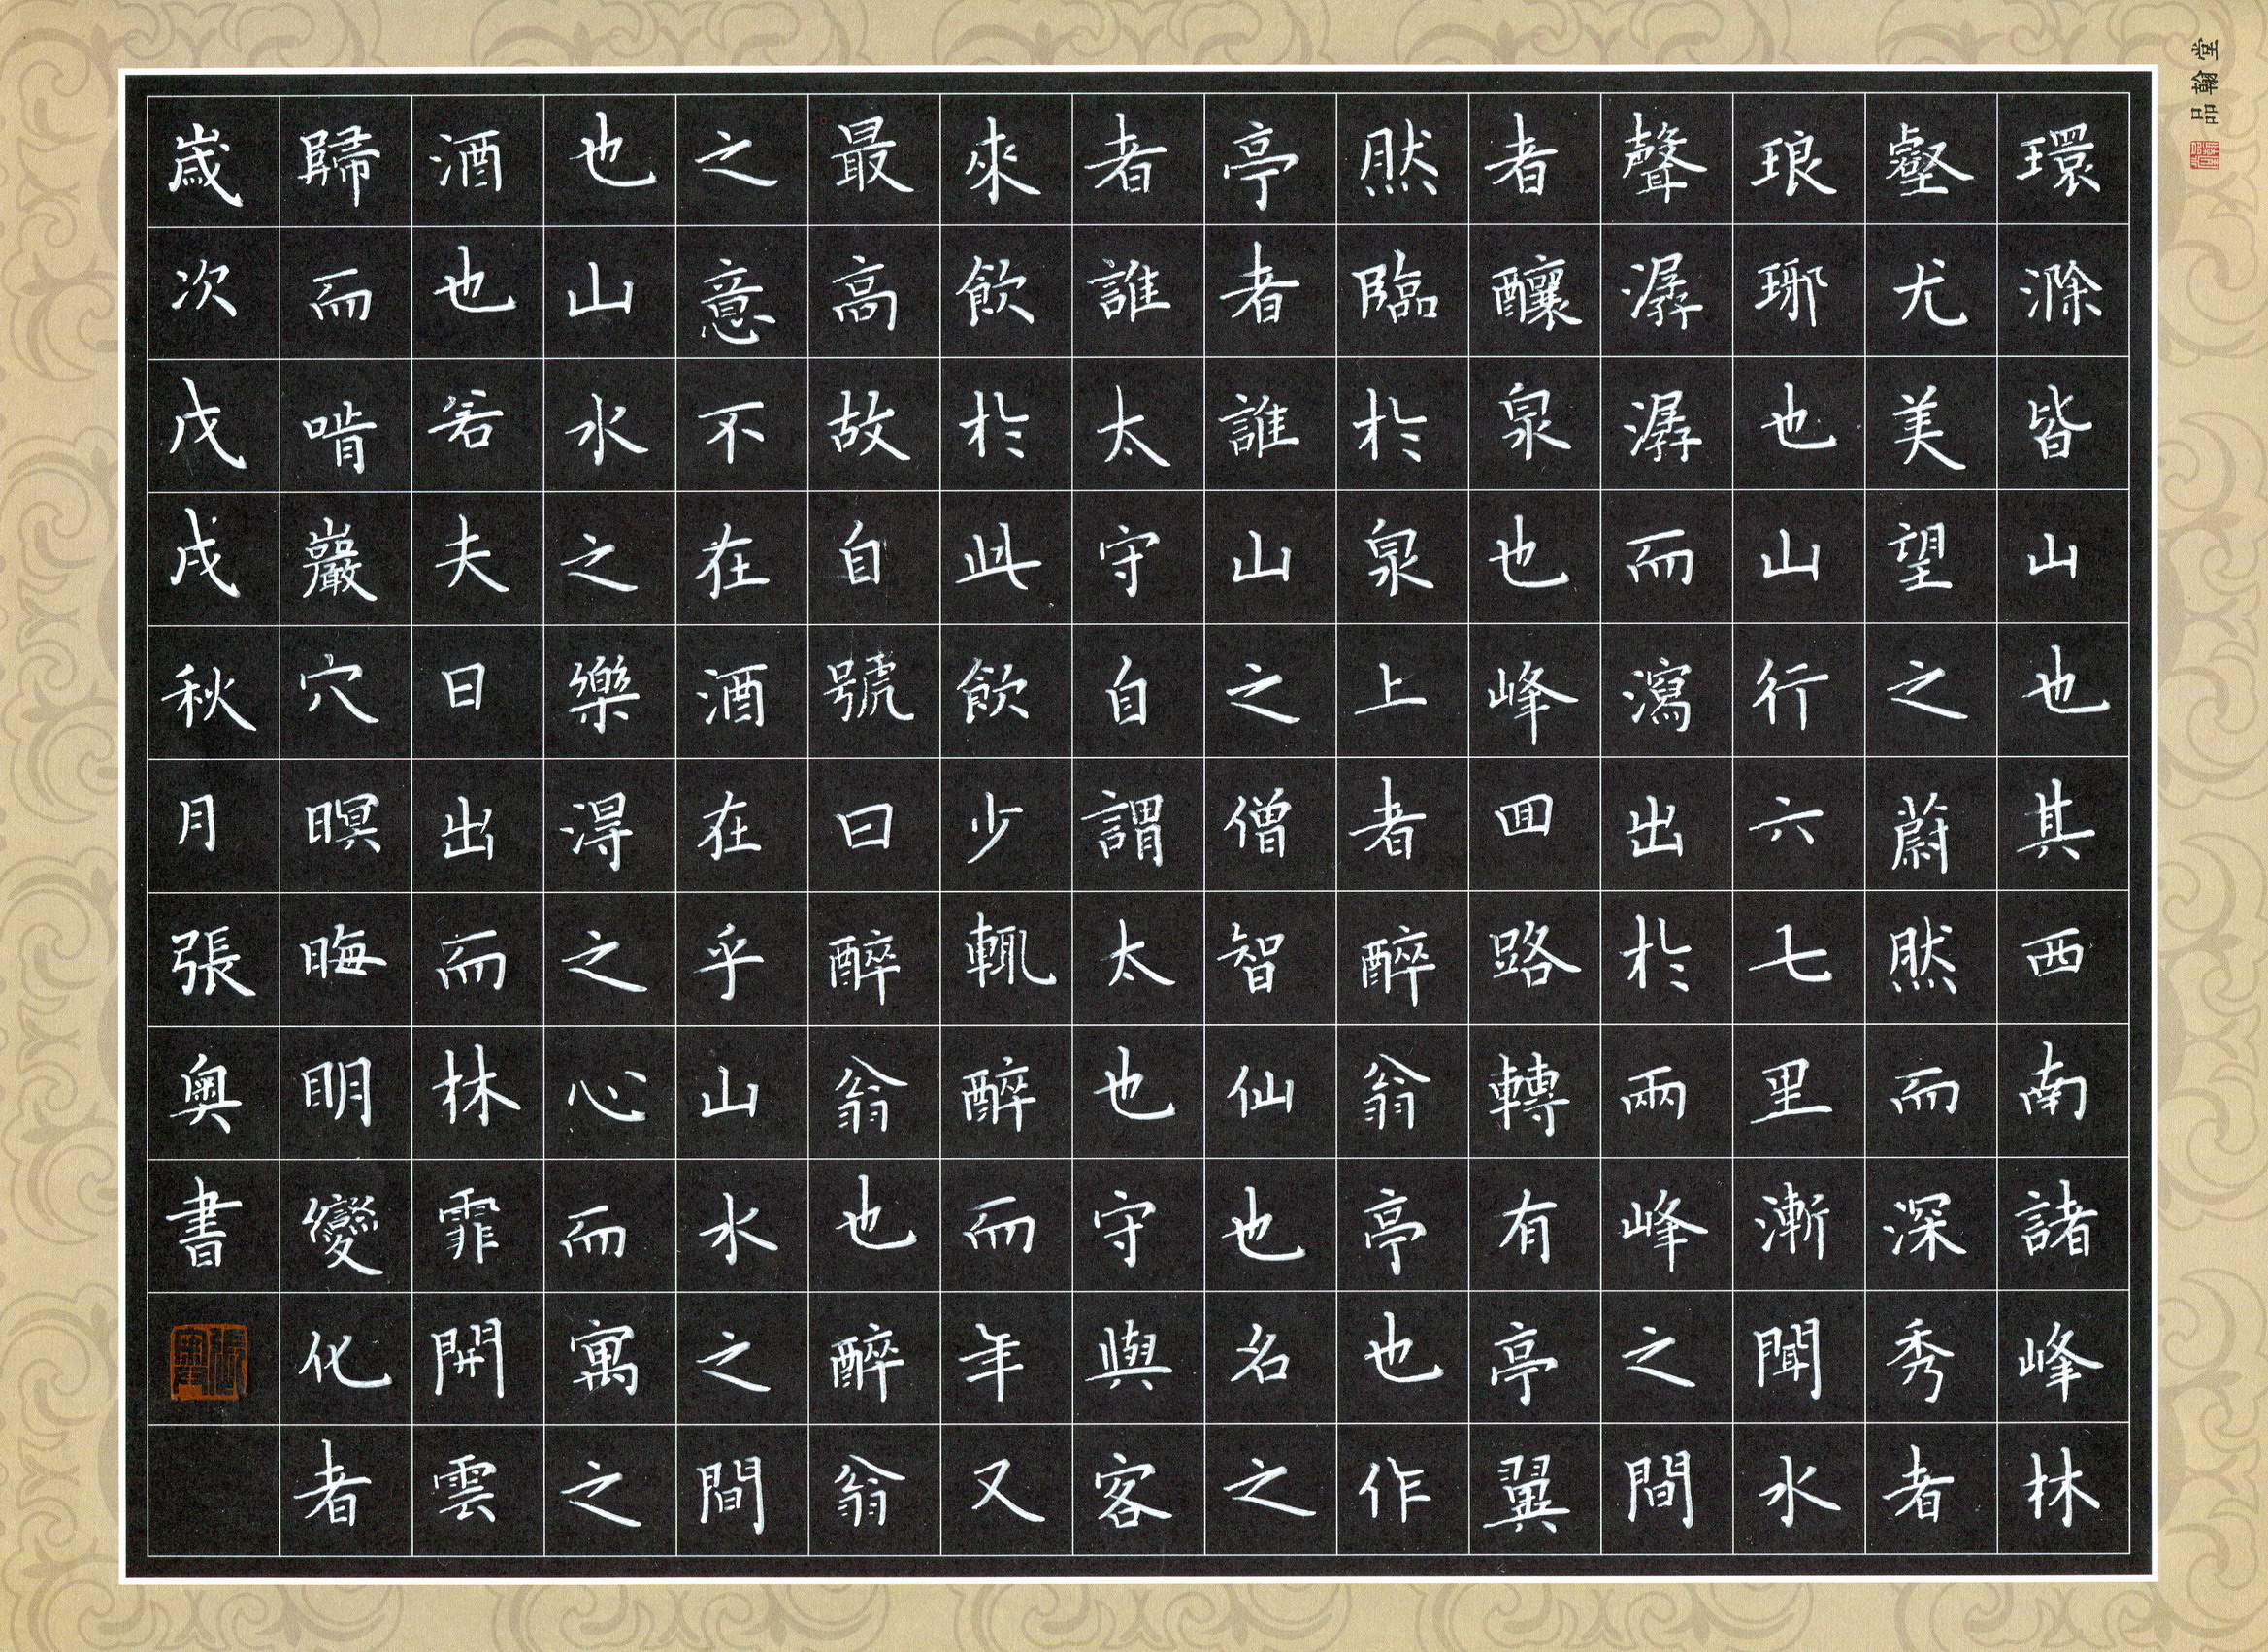 環滁皆山也其西南諸峰林
壑尤美望之蔚然而深秀者
琅琊也山行六七里漸聞水
聲潺潺而瀉出於兩峰之間
者釀泉也峰囬路轉有亭翼
然臨於泉上者醉翁亭也作
亭者誰山之僧智仙也名之
者誰太守自謂太也守與客
來飲於此飲少輒醉而年又
最高故自號曰醉翁也醉翁
之意不在酒在乎山水之間
也山水之樂得之心而寓之
酒也若夫日出而林霏開雲
歸而啃巖穴暝晦明變化者
歲次戊戌秋月張奧書
張奧
品翰堂